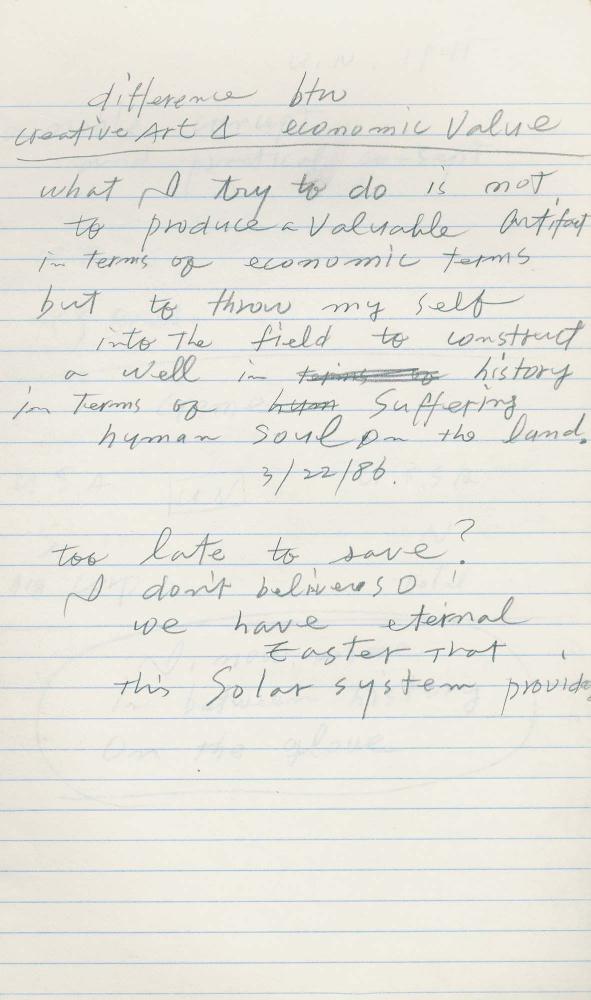 difference btw
creative Art & economic Value
what I try to do is not
to produce a Valuable Artifact
in terms of economic terms
but to throw my self
into The field to construct
a well in terms of history
in Terms of human Suffering
human Soul on the land.
3/22/86.
too late to save?
I don't beliveu so!
we have eternal
Easter That
this Solar system provide
On the